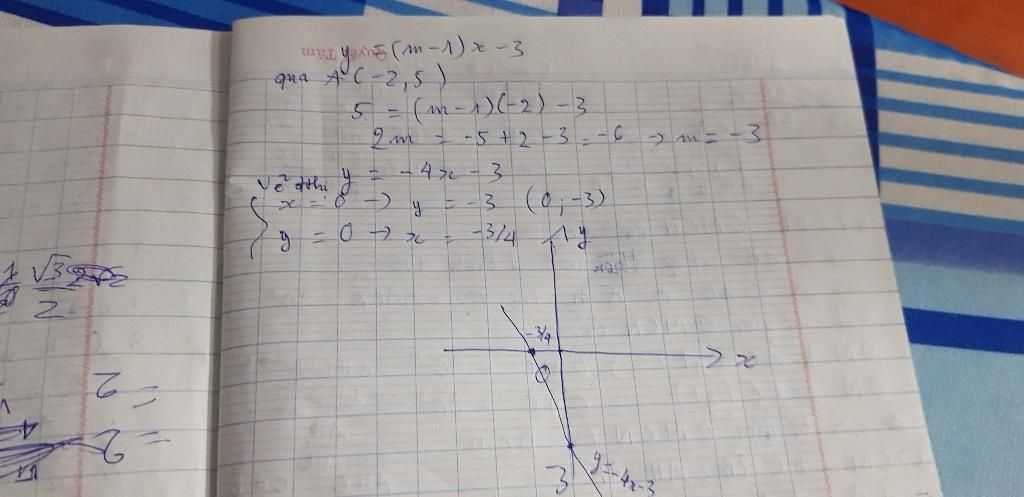 y = (m-1)x - 3
qua A(-2,5)
5 = (m-1)(-2) - 3
2m = -5+2-3 = -6 → m = -3
Vẽ đthị y = -4x - 3
x = 0 → y = -3 (0; -3)
y = 0 → x = -3/4
y
-3/4
x
0
3
y=-4x-3
√3
2
= 2
= 2